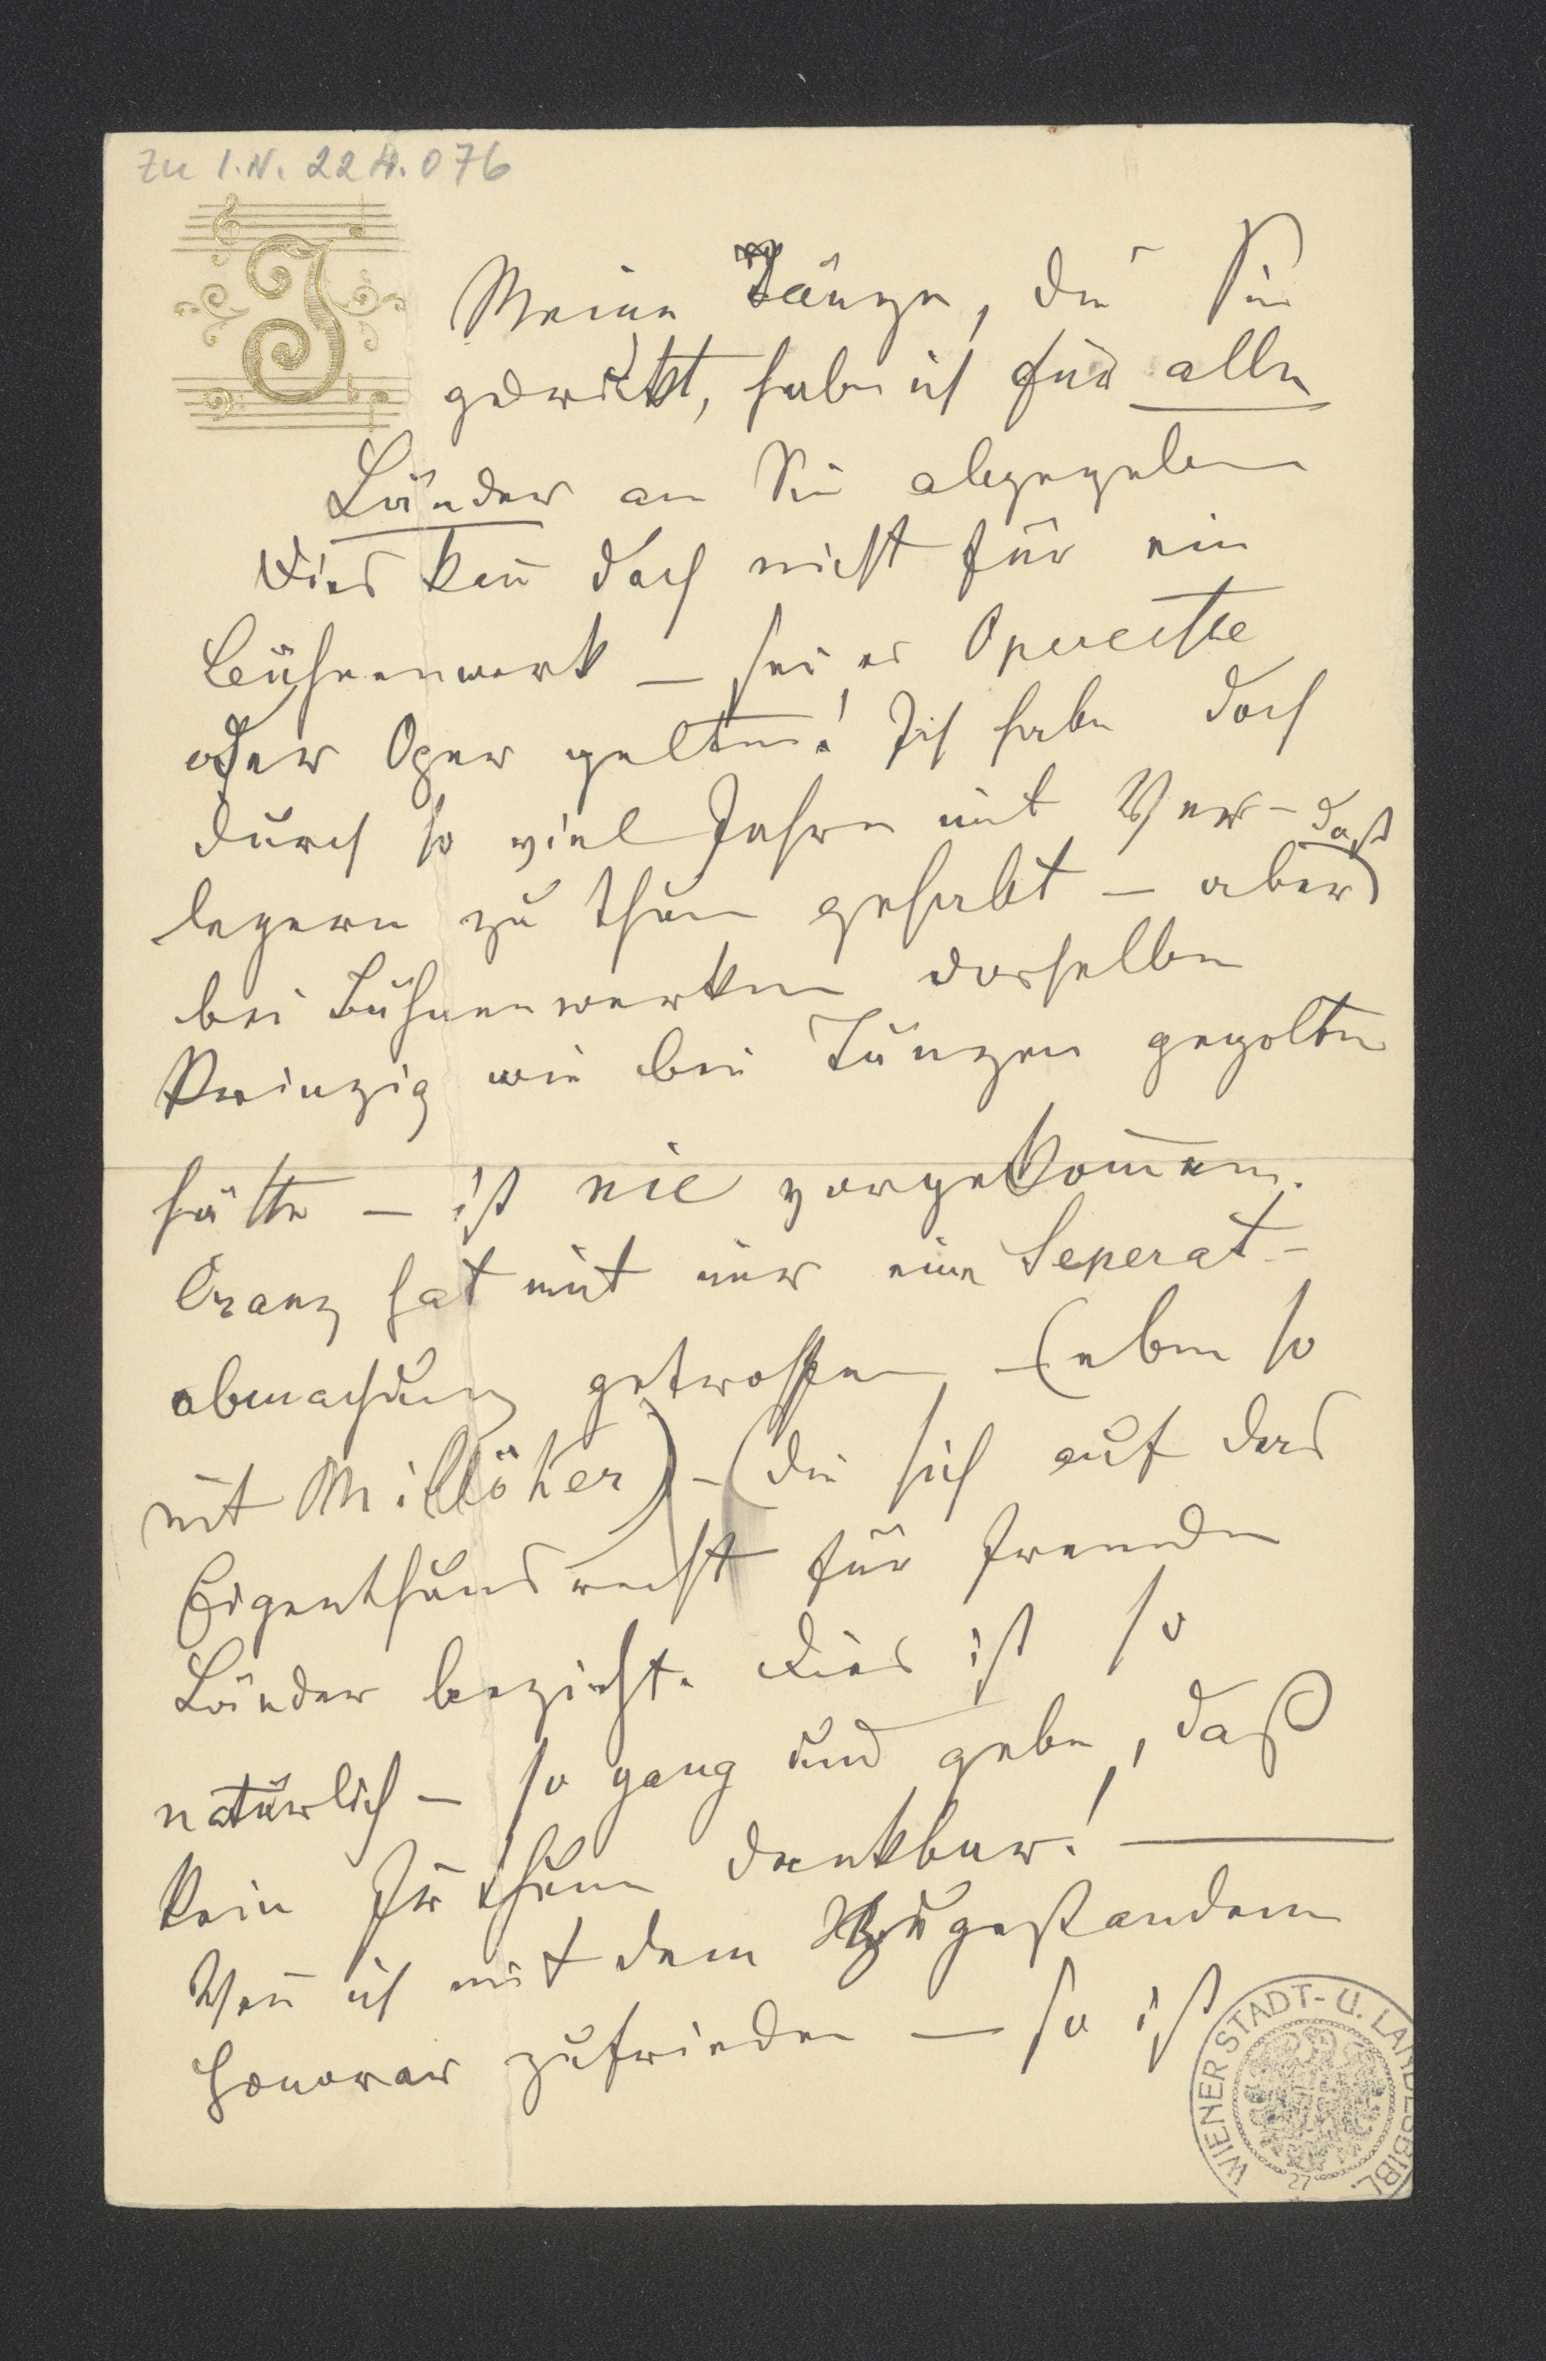 Zu I.N. 224.076
J
Meine Tänze, die Sie
gedruckt, habe ich für alle
Länder an Sie abgegeben
Dies kan̄ doch nicht für ein
Bühnenwerk – sei es Operette
oder Oper gelten! Ich habe doch
durch so viel Jahre mit Ver-
legern zu thun gehabt – aber daß
bei Bühnenwerken dasselbe
Prinzip wie bei Tänzen gegolten
hätte – ist nie vorgekom̄en.
Cranz hat mit mir eine Seperat-
abmachung getroffen – (eben so
mit Millöker) – (die sich auf das
Eigenthumsrecht für fremde
Länder bezieht. Dies ist so
natürlich – so gang und gebe, daß
kein Irthum denkbar! —
Wen̄ ich mit dem zugestandenen
Honorar zufrieden – so ist
WIENER STADT- U. LANDESBIBL.
27